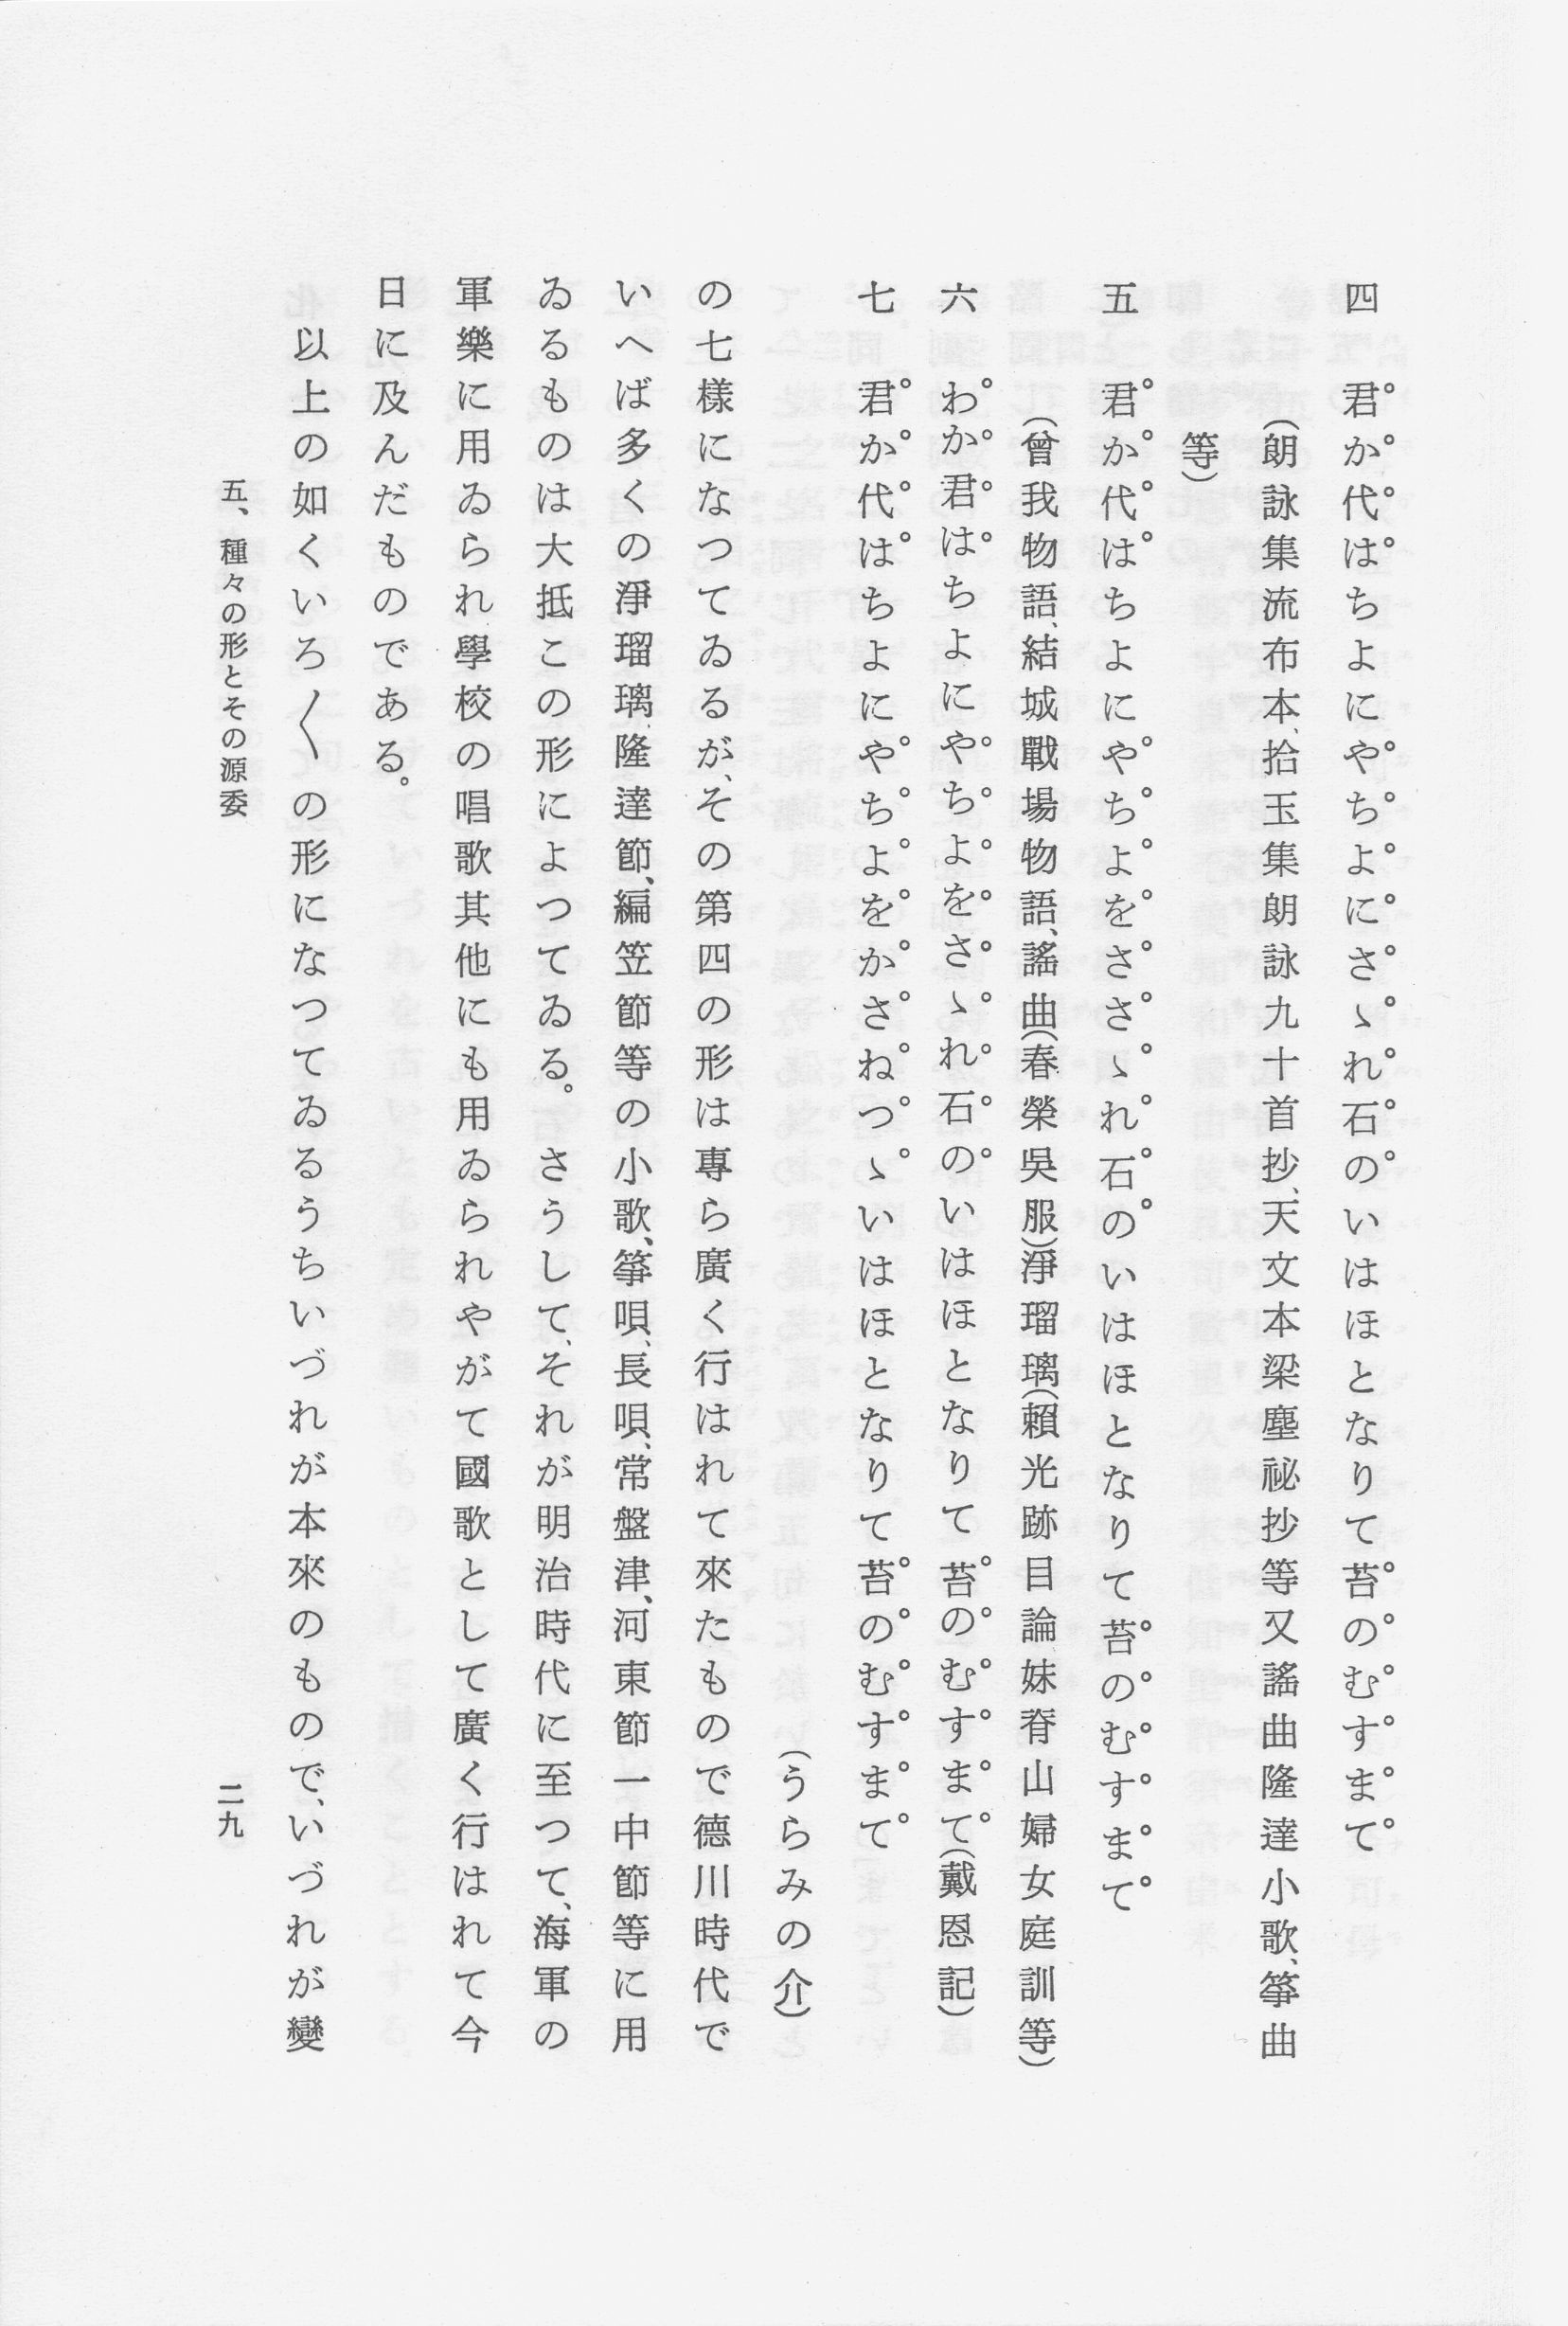 四　君か代はちよにやちよにさゝれ石のいはほとなりて苔のむすまて
（朗詠集流布本、拾玉集朗詠九十首抄、天文本梁塵祕抄等又謠曲隆達小歌、箏曲
等）
五　君か代はちよにやちよをささゝれ石のいはほとなりて苔のむすまて
（曾我物語、結城戰場物語、謠曲（春榮吳服）淨瑠璃（賴光跡目論妹脊山婦女庭訓等）
六　わか君はちよにやちよをさゝれ石のいはほとなりて苔のむすまて（戴恩記）
七　君か代はちよにやちよをかさねつゝいはほとなりて苔のむすまて
（うらみの介）
の七樣になつてゐるが、その第四の形は專ら廣く行はれて來たもので德川時代で
いへば多くの淨瑠璃、隆達節、編笠節等の小歌、箏唄、長唄、常盤津、河東節一中節等に用
ゐるものは大抵この形によつてゐる。さうして、それが明治時代に至つて、海軍の
軍樂に用ゐられ學校の唱歌其他にも用ゐられやがて國歌として廣く行はれて今
日に及んだものである。
以上の如くいろ〱の形になつてゐるうちいづれが本來のもので、いづれが變
五、種々の形とその源委
二九